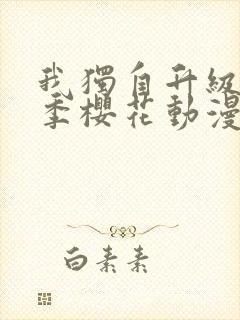 我獨自升級
季櫻花動漫
白素素